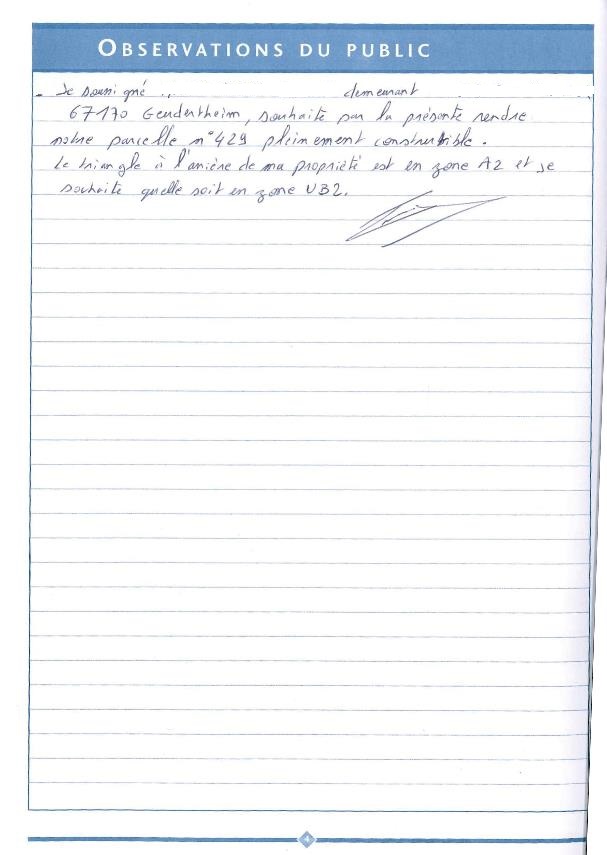 OBSERVATIONS DU PUBLIC
- Je soussigné .. demeurant
67170 Geudertheim, souhaite par la présente rendre
notre parcelle n°429 pleinement constructible.
Le triangle à l'arrière de ma propriété est en zone A2 et je
souhaite quelle soit en zone UB2.
4